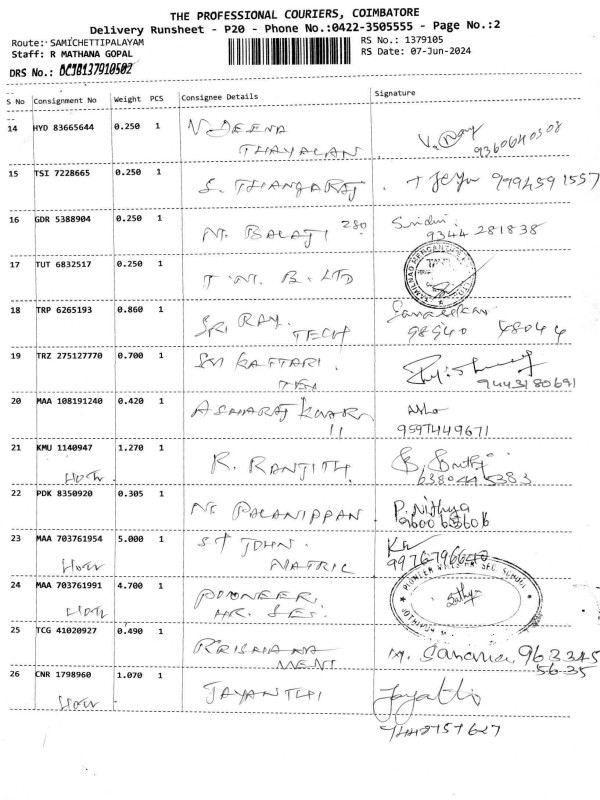 THE PROFESSIONAL COURIERS, COIMBATORE
Delivery Runsheet - P20 - Phone No.:0422-3505555 - Page No.:2
Route: SAMICHETTIPALAYAM RS No.: 1379105
Staff: R MATHANA GOPAL RS Date: 07-Jun-2024
DRS No.: DCJB137910502
S No Consignment No Weight PCS Consignee Details Signature
14 HYD 83665644 0.250 1 N DEENA
THAYALAN 9360640308
15 TSI 7228665 0.250 1 S. THANGARAJ 9994591557
16 GDR 5388904 0.250 1 M. BALAJI 280
9344 281838
17 TUT 6832517 0.250 1 T.M.B.LTD
18 TRP 6265193 0.860 1 SRI RAJ.
TECH 98940 48044
19 TRZ 275127770 0.700 1 SRI KATTARI.
TEX 9443180691
20 MAA 108191240 0.420 1 ASHARAJ KUMAR Asho
11 9597449671
21 KMU 1140947 1.270 1 R. RANJITH
6380445383
22 PDK 8350920 0.305 1 M PALANIPPAN P. Nithya
9600656606
23 MAA 703761954 5.000 1 ST JOHN.
MATRIC
24 MAA 703761991 4.700 1 PIONEER
HR. SEC. Sathya
PIONEER MILLS HR. SEC. SCHOOL
25 TCG 41020927 0.490 1 KRISHNA NA
MENT 963345
56-35
26 CNR 1798960 1.070 1 JAYANTHI